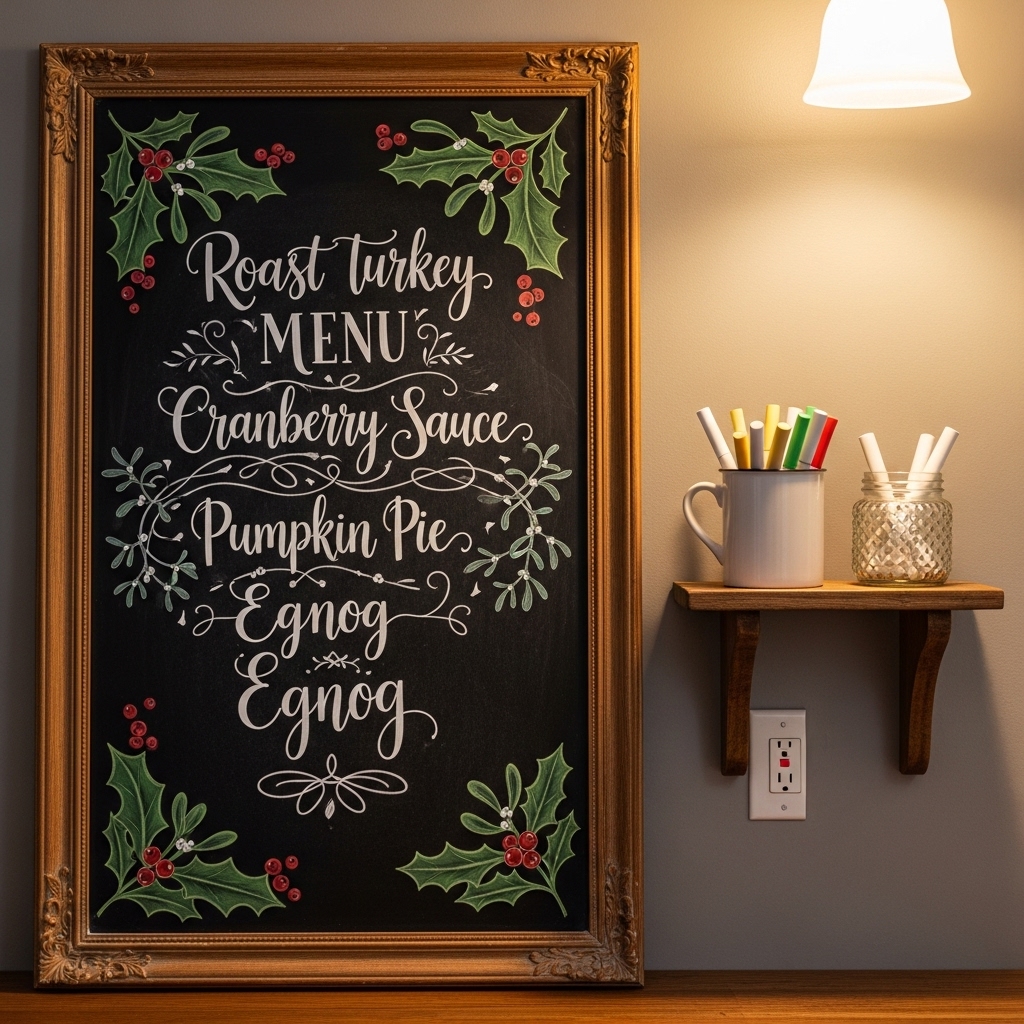 Roast turkey
MENU
Cranberry Sauce
Pumpkin Pie
Egnog
Egnog